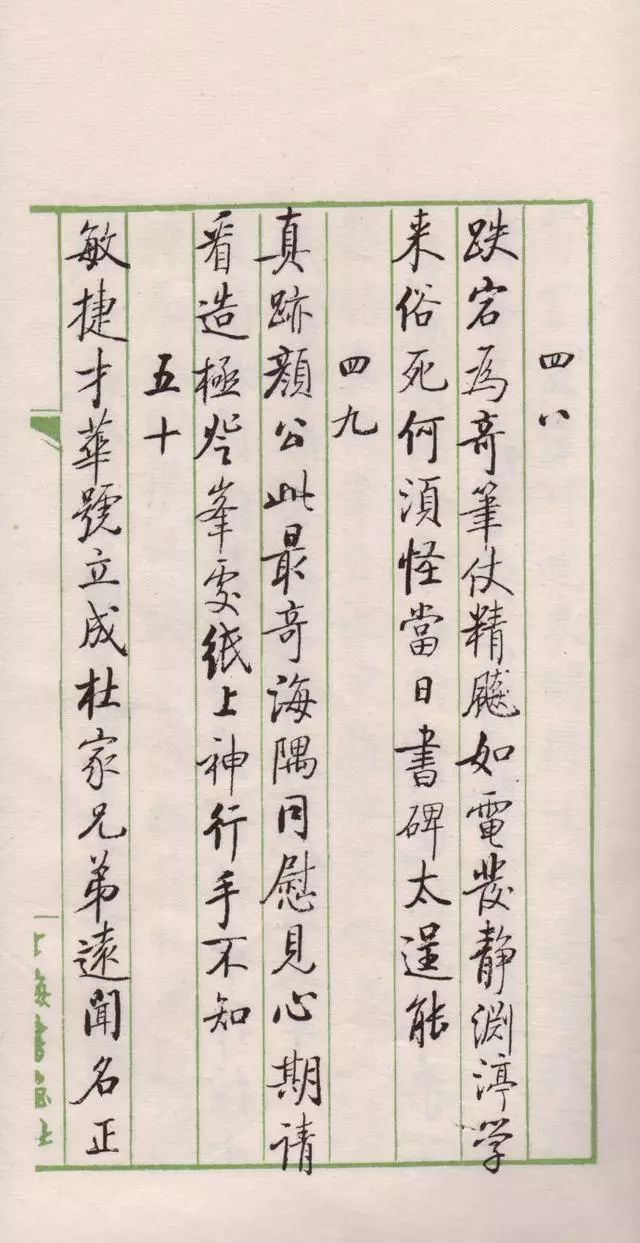 四八
跌宕為奇筆仗精飈如電發静渊渟学
来俗死何須怪當日書碑太逞能
四九
真跡顏公此最奇海隅同慰見心期請
看造極登峯處紙上神行手不知
五十
敏捷才華號立成杜家兄弟遠聞名正
上海書画社